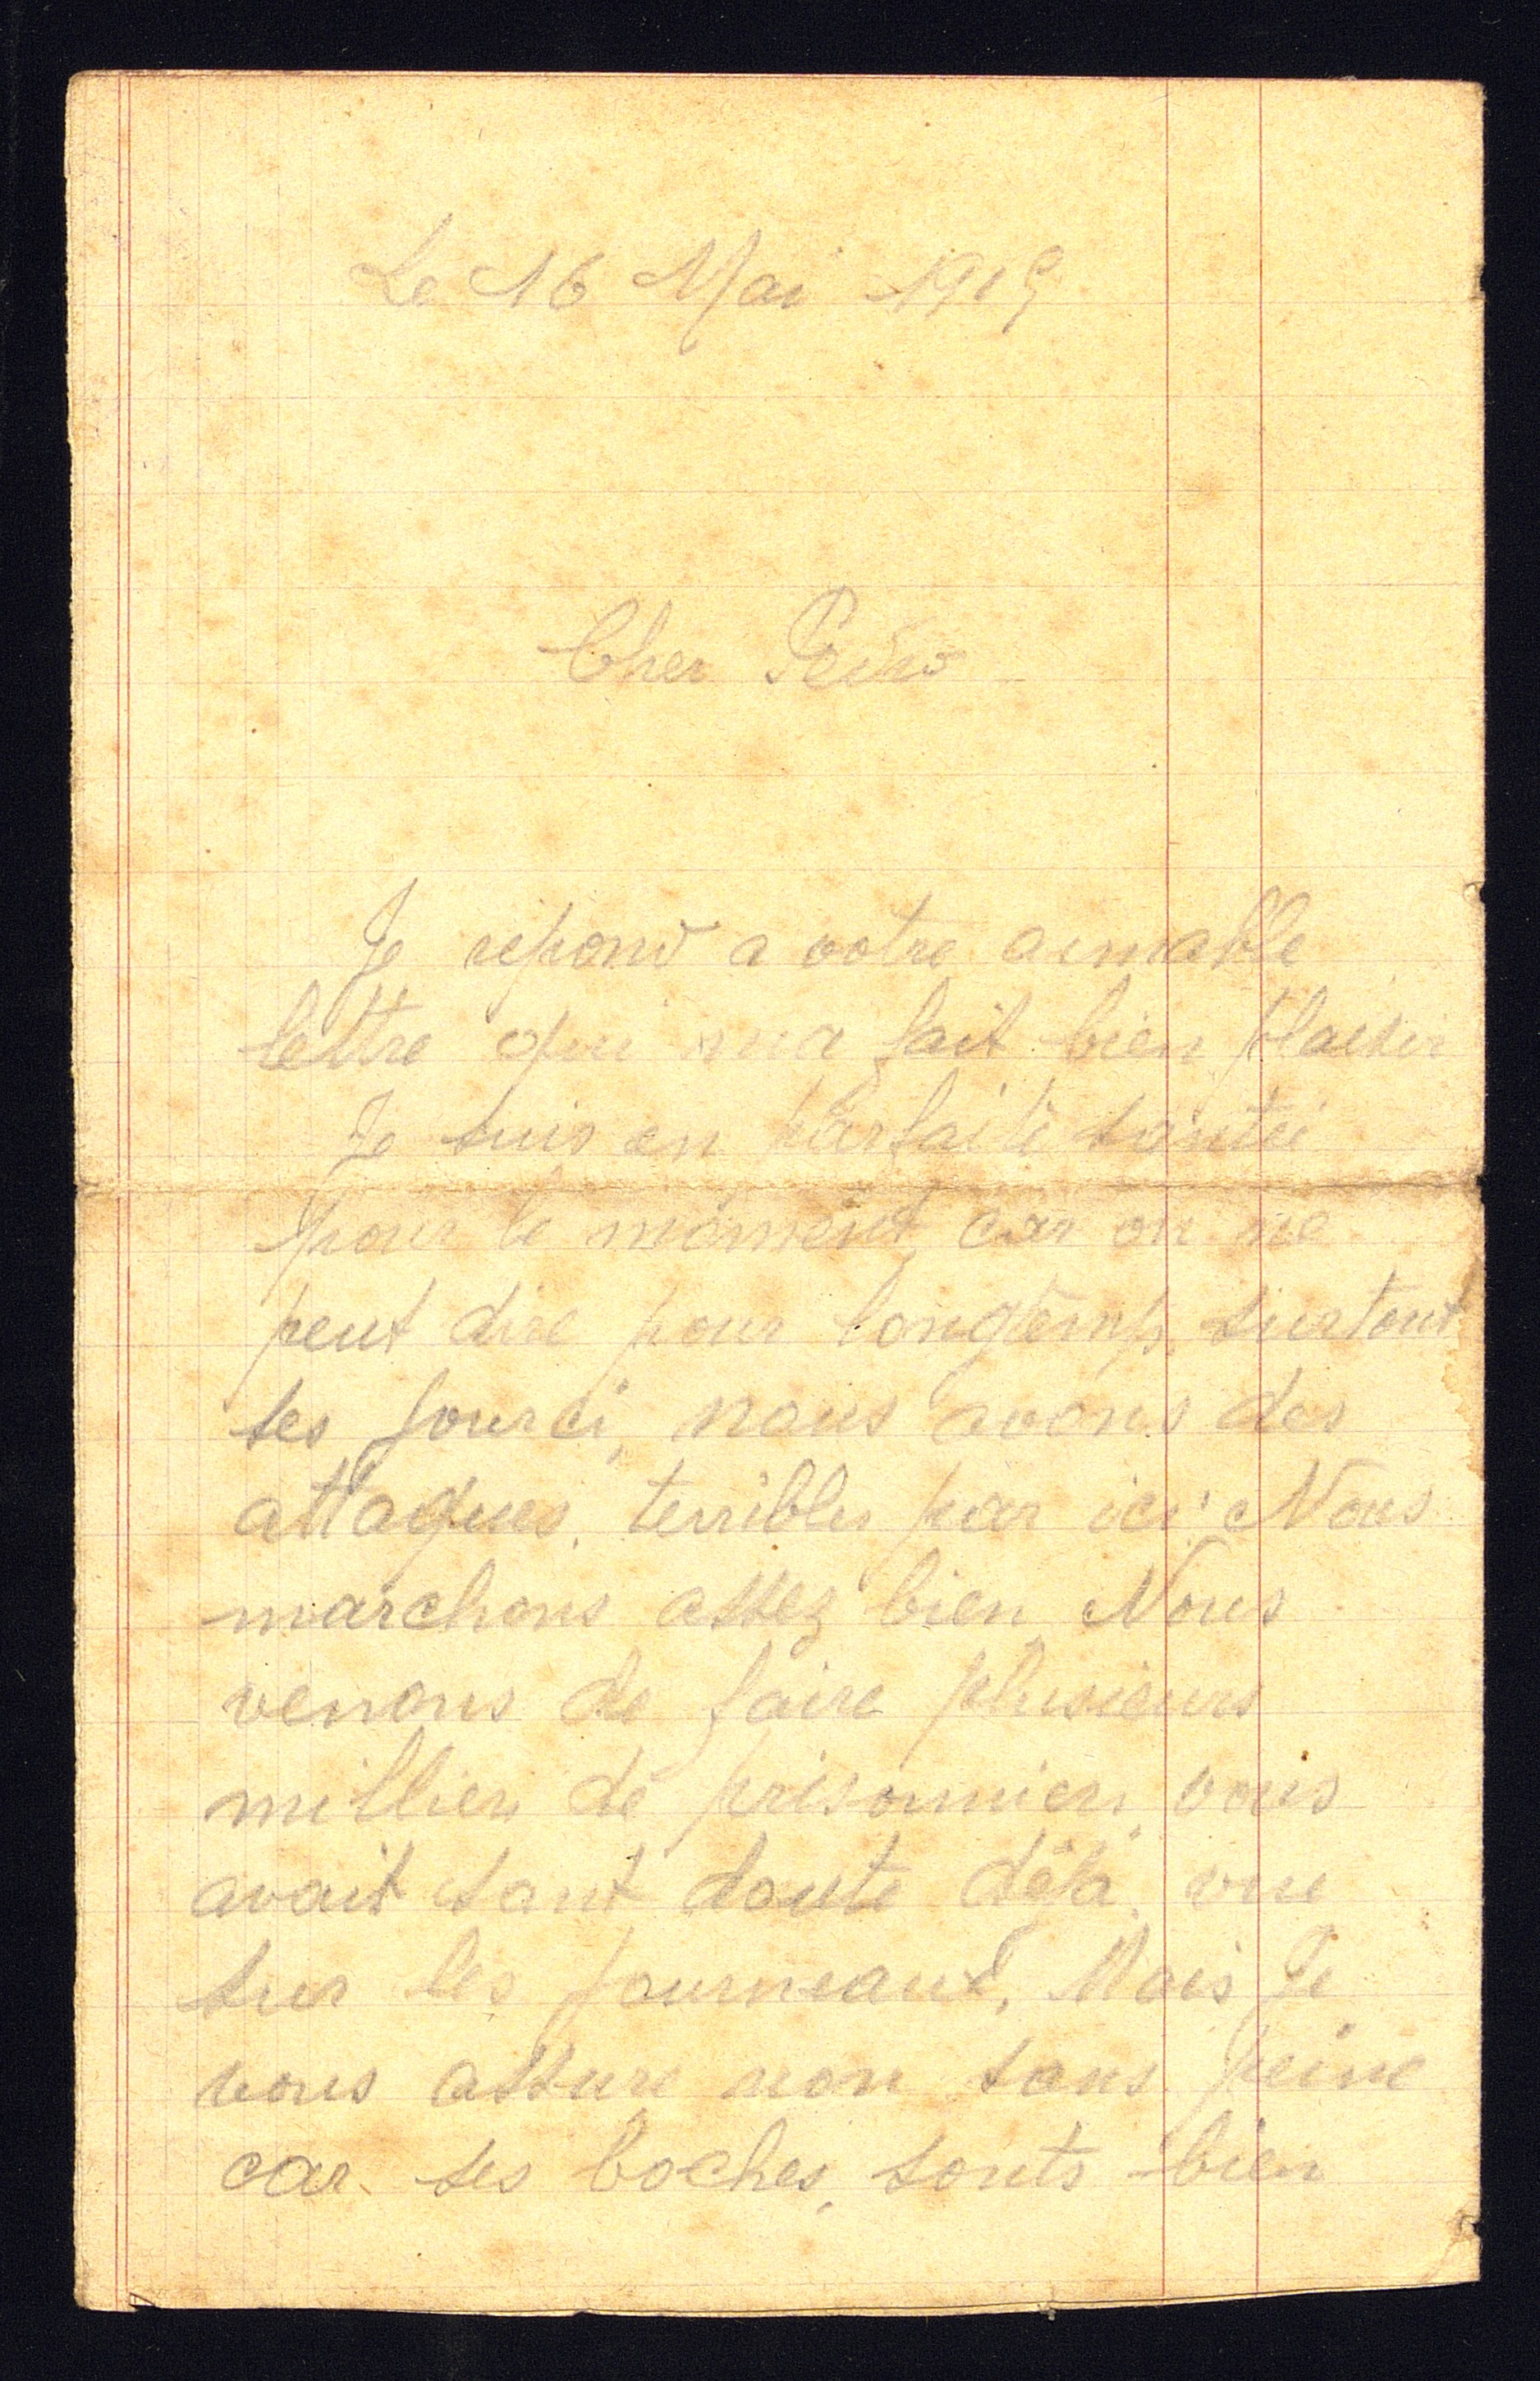 Le 16 Mai 1915
Cher Pedro
Je répond a votre aimable
lettre qui ma fait bien plaisir
Je suis en parfaite santée
pour le moment, car on ne
peut dire pour longtemp, surtout
ses jourci, nous avons des
attaques, terribles par ici. Nous
marchons assez bien, Nous
venons de faire plusieurs
milliers de prisonniers, vous
avait sant doute déjà, vue
sur les journeaux. Mais Je
vous assure non sans peine
car ses boches, sonts bien